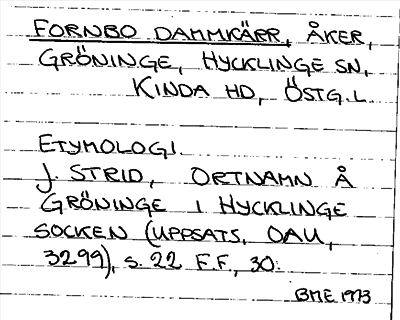 FORNBO DAMMKÄRR, ÅKER,
GRÖNINGE, HYCKLINGE SN,
KINDA HD, ÖSTG.L.
ETYMOLOGI.
J. STRID, ORTNAMN Å
GRÖNINGE I HYCKLINGE
SOCKEN (UPPSATS, OAU,
3299), s. 22 F.F., 30.
BME 1973